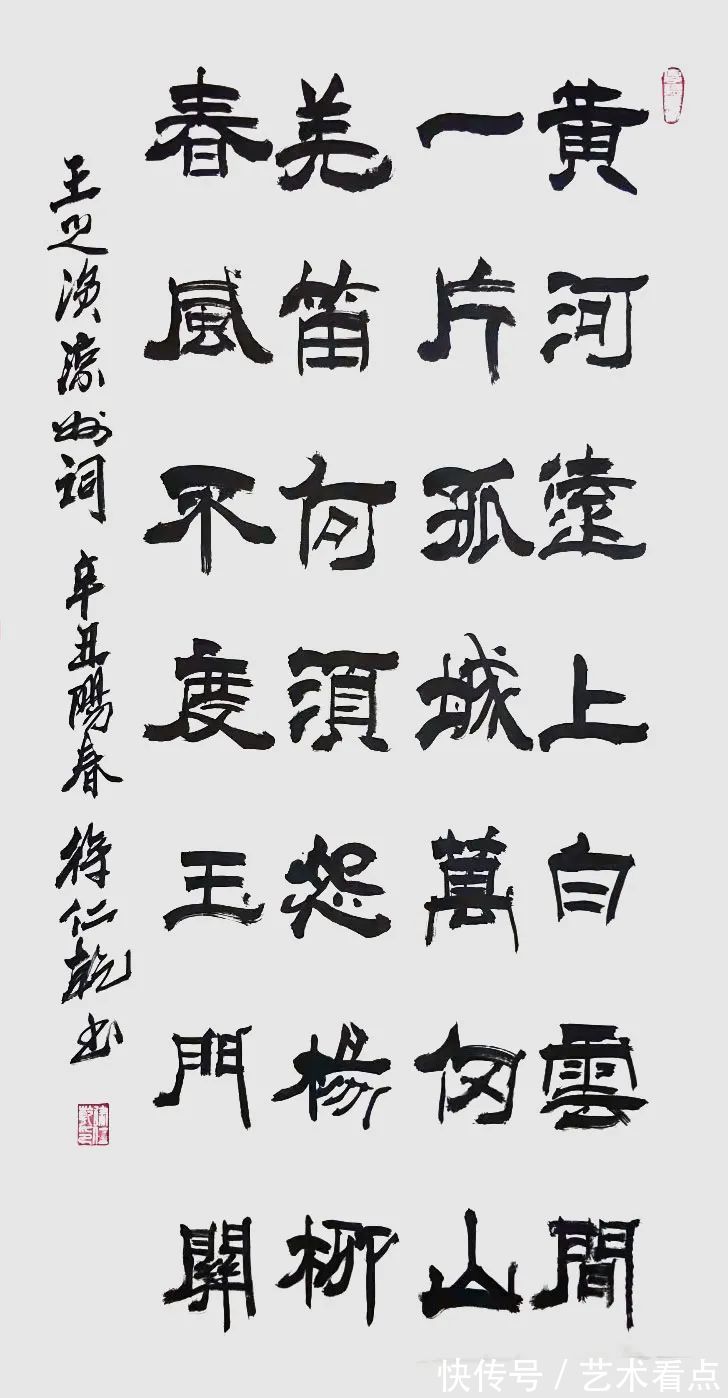 黄河遠上白雲間
一片孤城萬仞山
羌笛何須怨楊柳
春風不度玉門關
王之渙涼州词 辛丑陽春 徐仁乾书
快传号／艺术看点